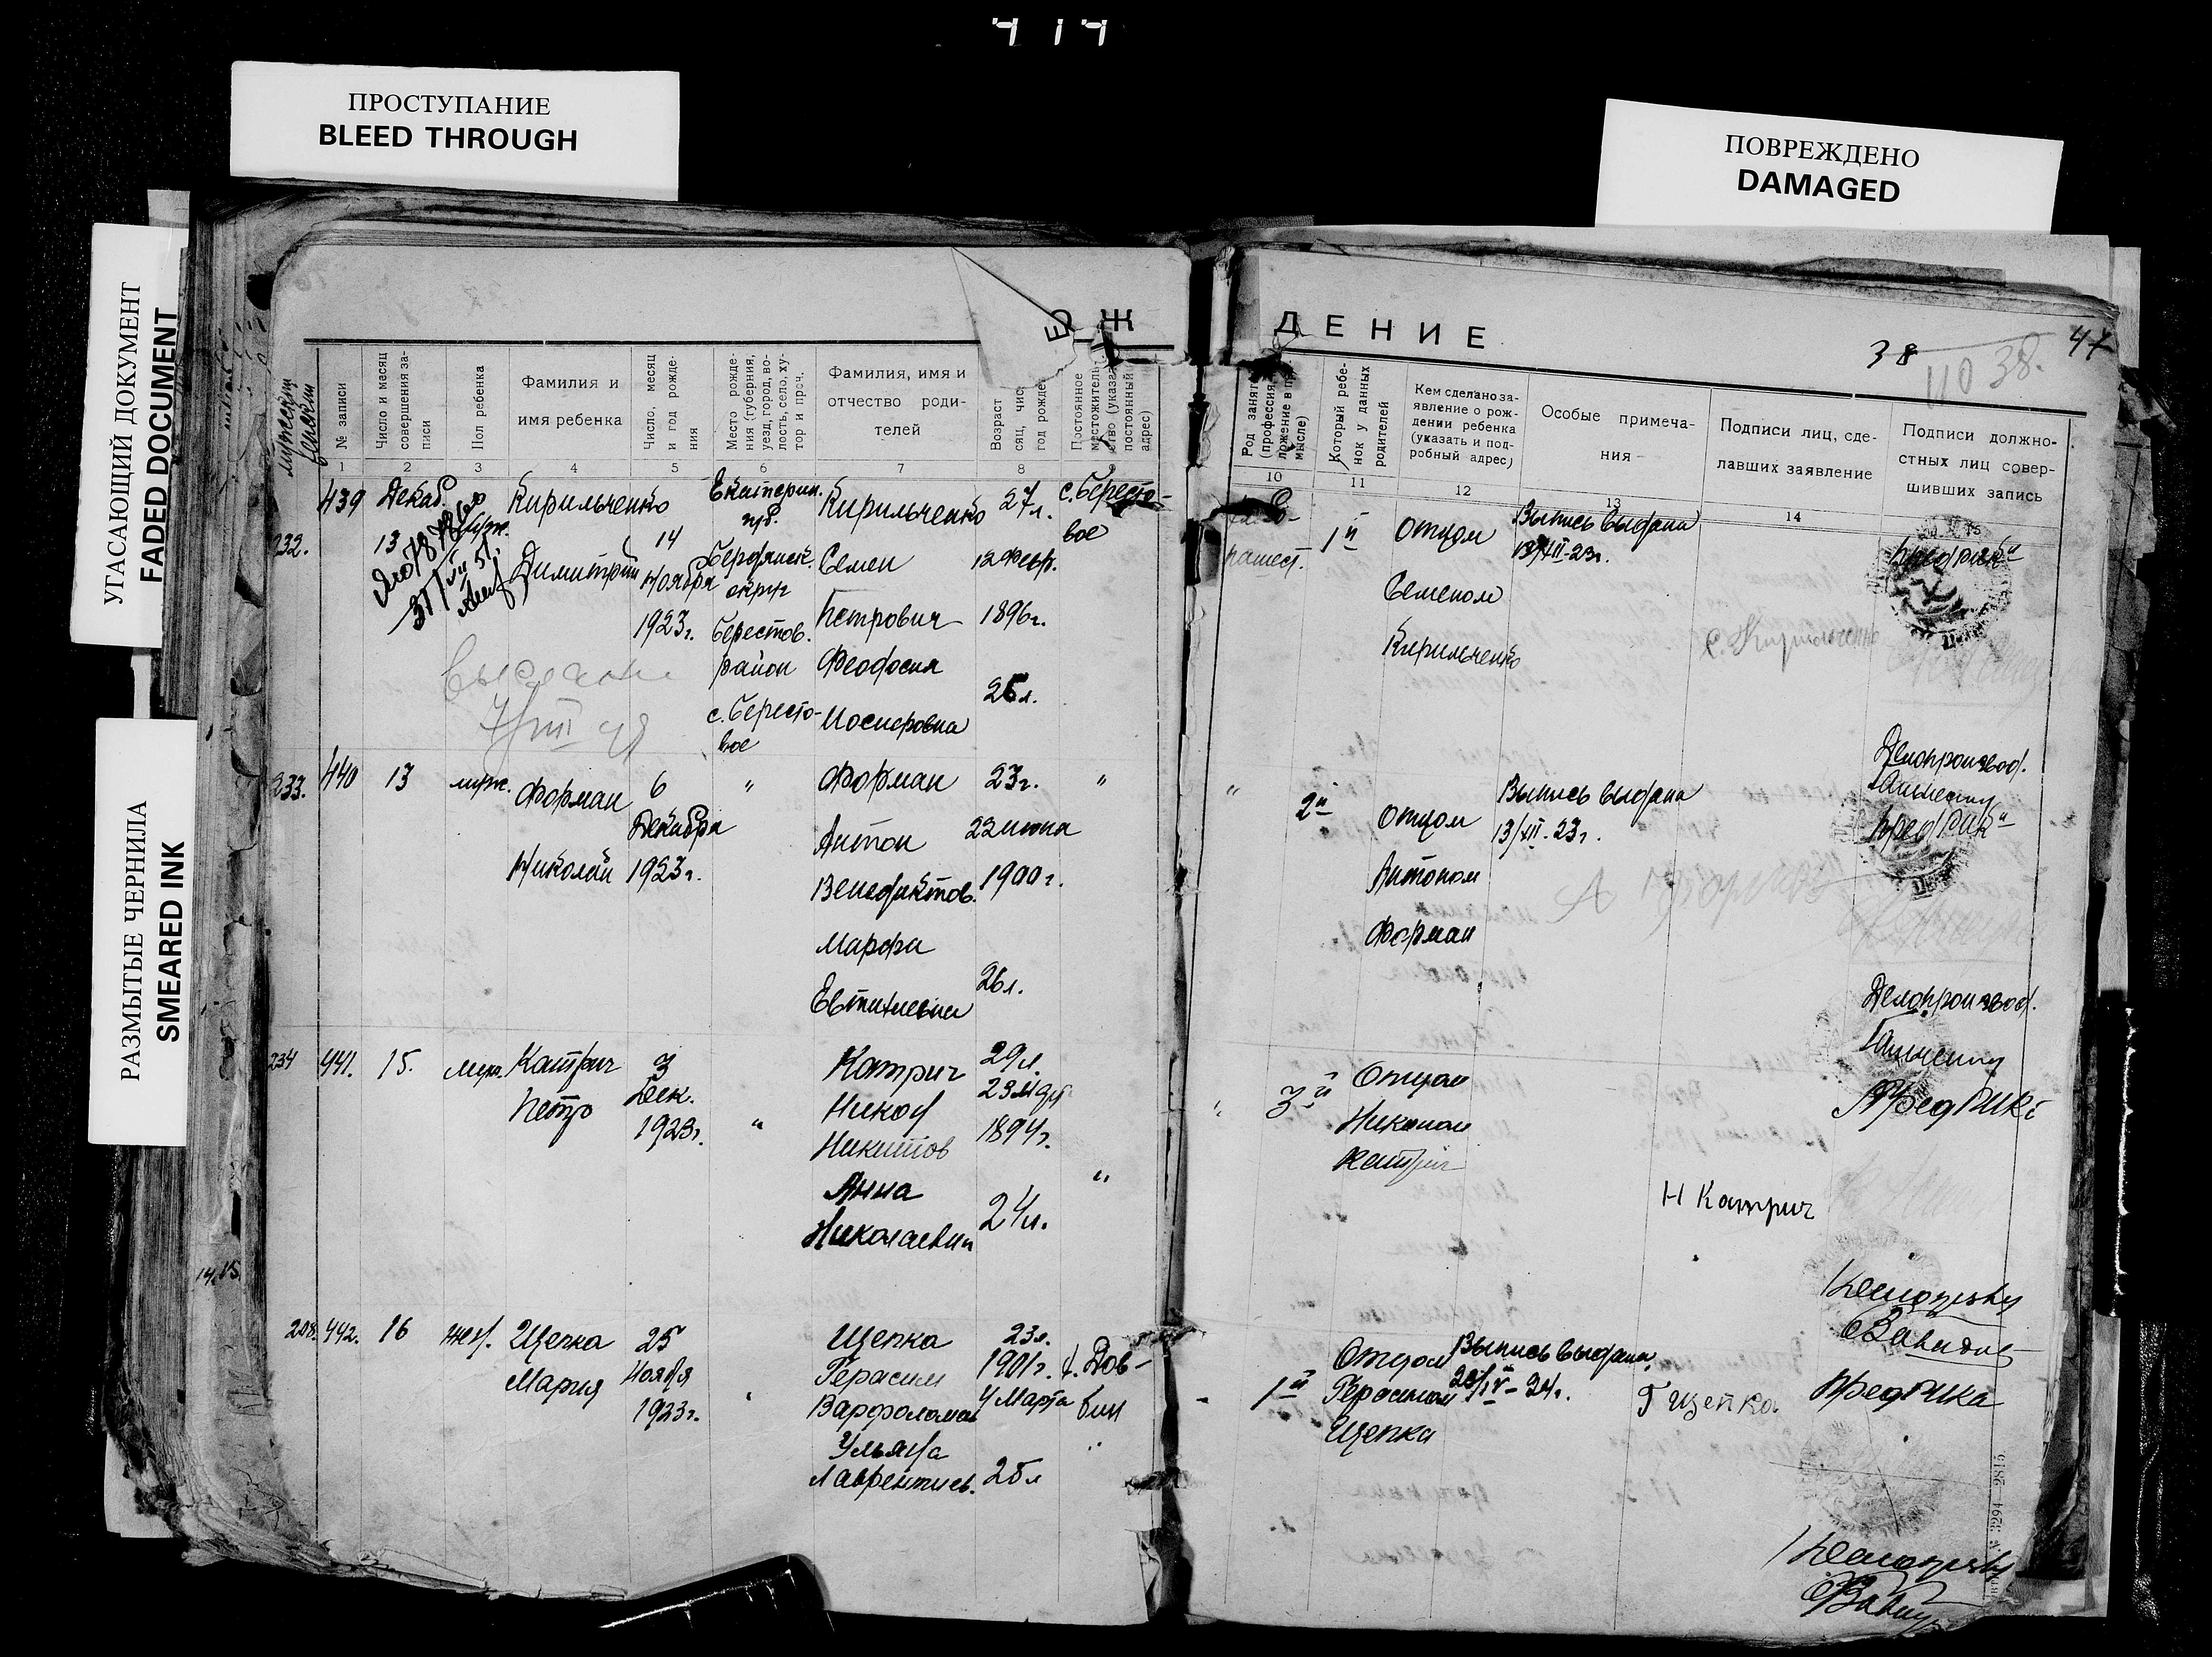 414
ПРОСТУПАНИЕ
BLEED THROUGH
ПОВРЕЖДЕНО
DAMAGED
УГАСАЮЩИЙ ДОКУМЕНТ
FADED DOCUMENT
РАЗМЫТЫЕ ЧЕРНИЛА
SMEARED INK
Ж
ДЕНИЕ
38
47
110 38.
мужеским
женским
№ записи
Число и месяц
совершения за-
писи
Пол ребенка
Фамилия и
имя ребенка
Число, месяц
и год рожде-
ния
Место рожде-
ния (губерния,
уезд, город, во-
лость, село, ху-
тор и проч.
Фамилия, имя и
отчество роди-
телей
Возраст
сяц, чис
год рожден
Постоянное
местожитель
ство (указа
постоянный
адрес)
Род занят
(профессия,
ложение в п
мысле)
Который ребе-
нок у данных
родителей
Кем сделано за-
явление о рож-
дении ребенка
(указать и под-
робный адрес)
Особые примеча-
ния
Подписи лиц, сде-
лавших заявление
Подписи должно-
стных лиц совер-
шивших запись
1 2 3 4 5 6 7 8 9
10 11 12 13 14
232.
439
Декаб.
13
муж.
Кирильченко
Димитрий
14
Ноября
1923г.
Екатерин.
губ.
Бердянск.
округ
Берестов.
район
с. Бересто-
вое
Кирильченко
Семен
Петрович
Феодосия
Иосифовна
27л.
12 февр.
1896г.
25л.
с. Бересто-
вое
пашест.
1й
Отцом
Семеном
Кирильченко
Выпись выдана
13/XII-23г.
С. Кирильченко
Предрика
Делопроизвод.
233.
440
13
муж.
Форман
Николай
6
Декабря
1923г.
"
Форман
Антон
Венедиктов.
Марфа
Евтихиевна
23г.
22 июня
1900г.
26л.
"
"
2й
Отцом
Антоном
Форман
Выпись выдана
13/XII-23г.
А Форман
Предрика
Делопроизвод.
234
441.
15.
муж.
Катрич
Петро
3
Дек.
1923г.
"
Катрич
Никон
Никитов
Анна
Николаевна
29л.
23 Мар
1894г.
24л.
"
"
3й
Отцом
Никоном
Катрич
Н Катрич
ПредРика
14.15.
208.
442.
16
жен.
Щепка
Мария
25
Ноября
1923г.
"
Щепка
Герасим
Варфоломе
Ульяна
Лаврентиев.
23л.
1901г.
4 Марта
25л
х. Дов-
бин
1й
Отцом
Герасимом
Щепка
Выпись выдана
20/IV-24г.
Г Щепка.
ПредРика
3294 — 2815